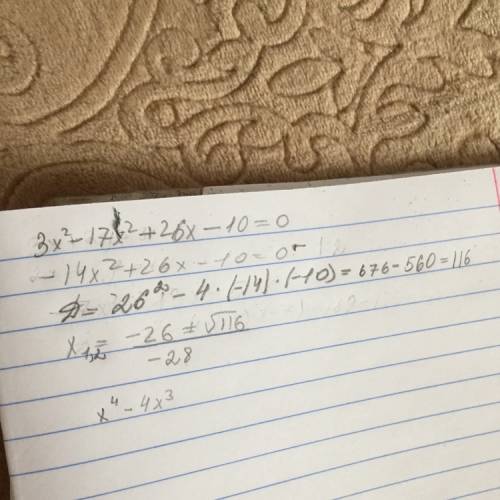 3x² - 17x² + 26x - 10 = 0
- 14x² + 26x - 10 = 0
D = 26² - 4 · (-14) · (-10) = 676 - 560 = 116
x₁,₂ = (-26 ± √116) / -28
x⁴ - 4x³